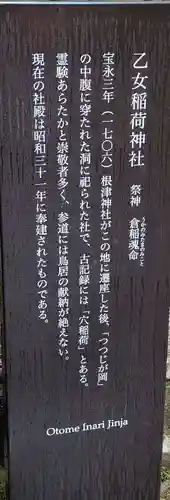 乙女稲荷神社 祭神 倉稲魂命
うかのみたまのみこと
宝永三年（一七〇六）根津神社がこの地に遷座した後、「つつじが岡」
の中腹に穿たれた洞に祀られた社で、古記録には「穴稲荷」とある。
霊験あらたかと崇敬者多く、参道には鳥居の献納が絶えない。
現在の社殿は昭和三十一年に奉建されたものである。
Otome Inari Jinja